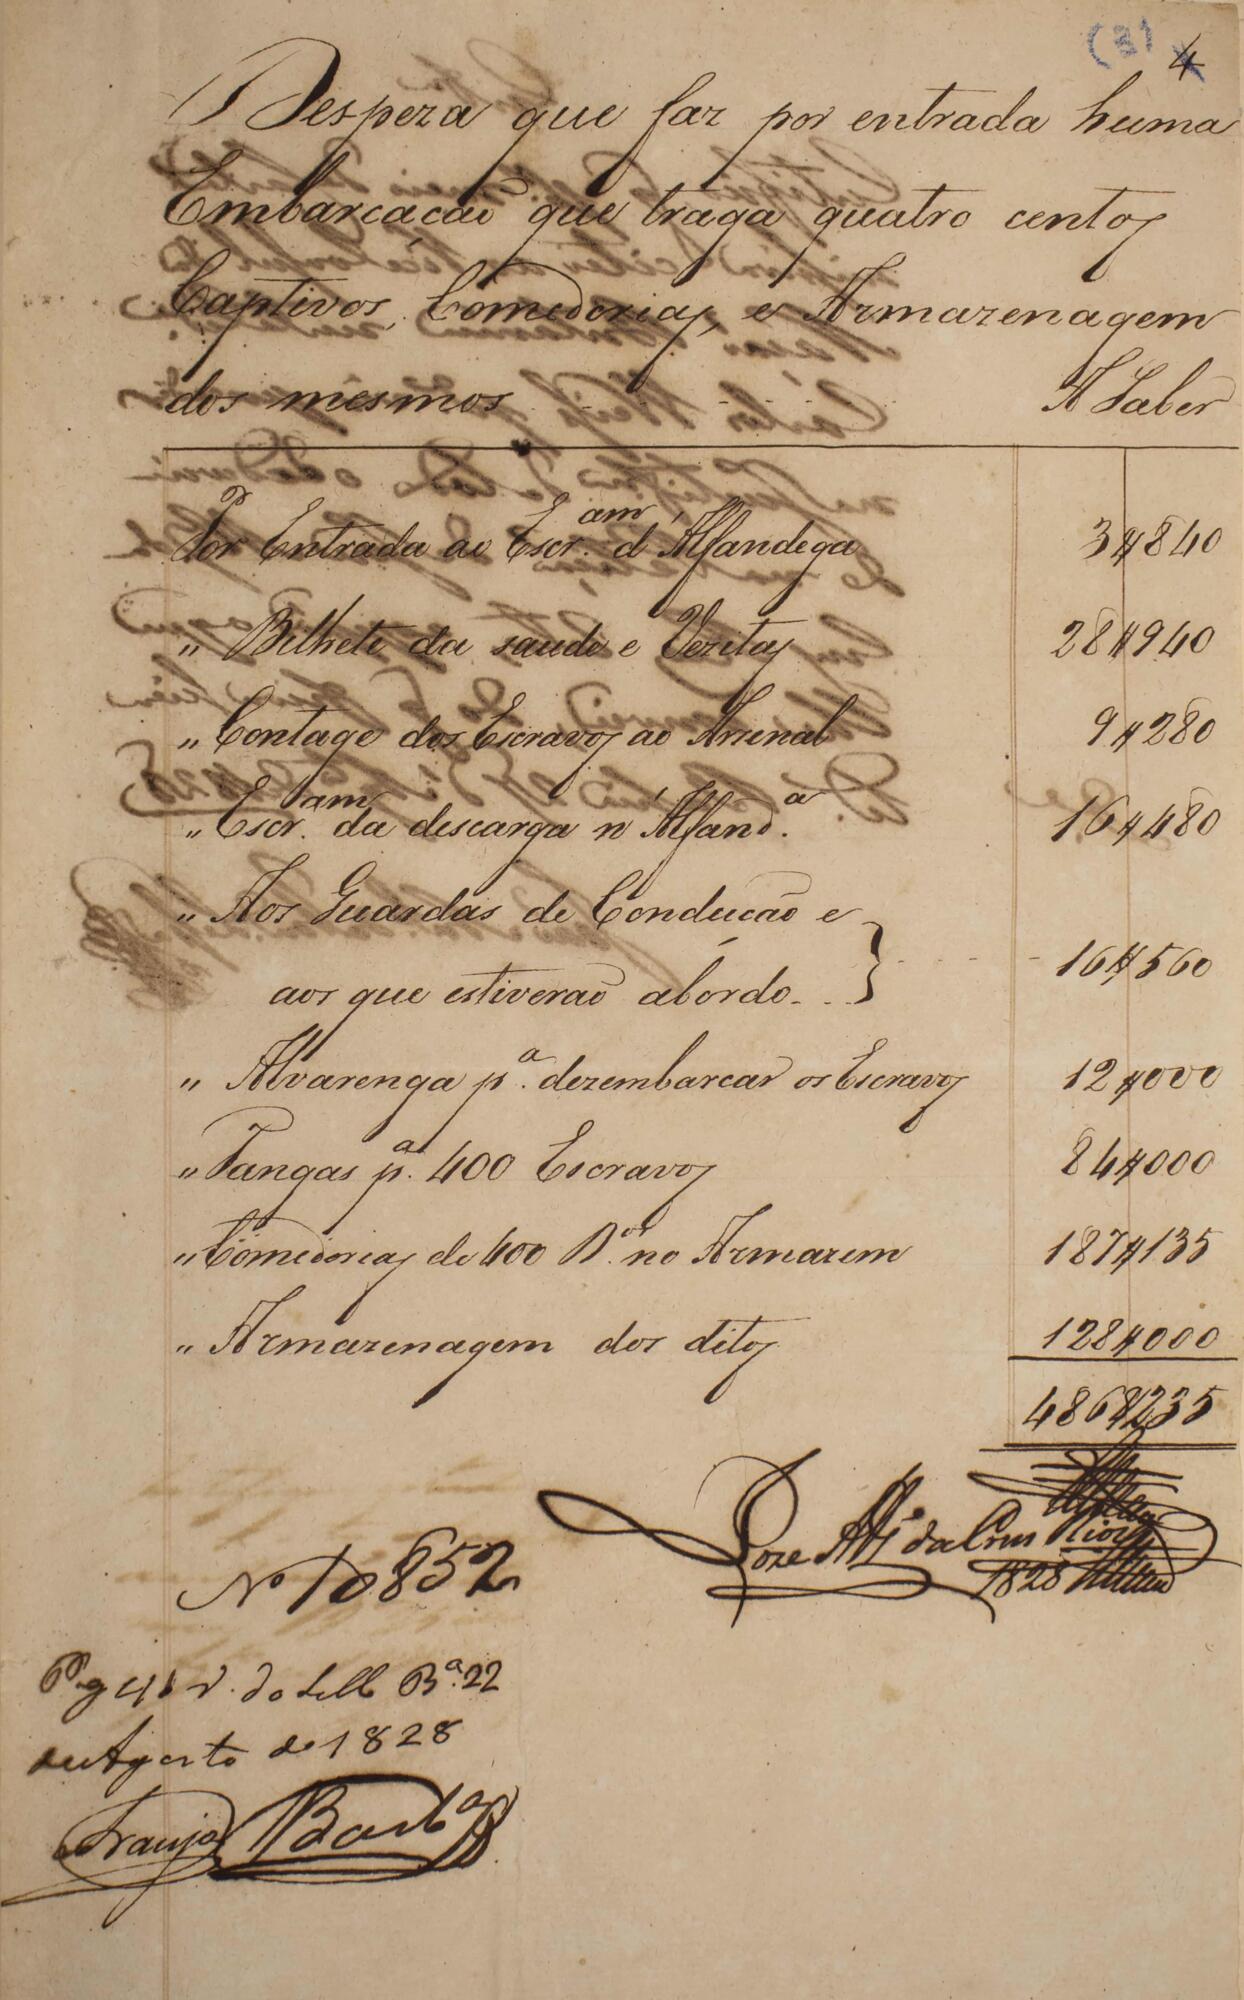 (3) 4
Despeza que faz por entrada huma
Embarcacaõ que traga quatro centos
Captivos, Comedorias, e Armazenagem
dos mesmos A Saber
Por Entrada ao Escr.am d'Alfandega 3#840
" Bilhete da saude e Vezitas 28#940
" Contage dos Escravos ao Arsenal 9#280
" Escr.am da descarga n'Alfand.a 16#480
" Aos Guardas de Conducaõ e
aos que estiveraõ abordo 16#560
" Alvarenga p.a dezembarcar os Escravos 12#000
" Tangas p.a 400 Escravos 84#000
" Comedorias de 400 D.os no Armazem 187#135
" Armazenagem dos ditos 128#000
486#235
Joze da Cruz Rios
1828
No 10852
Pg 40 r. do Sello B.a 22
de Agosto de 1828
Araujo Barb.a